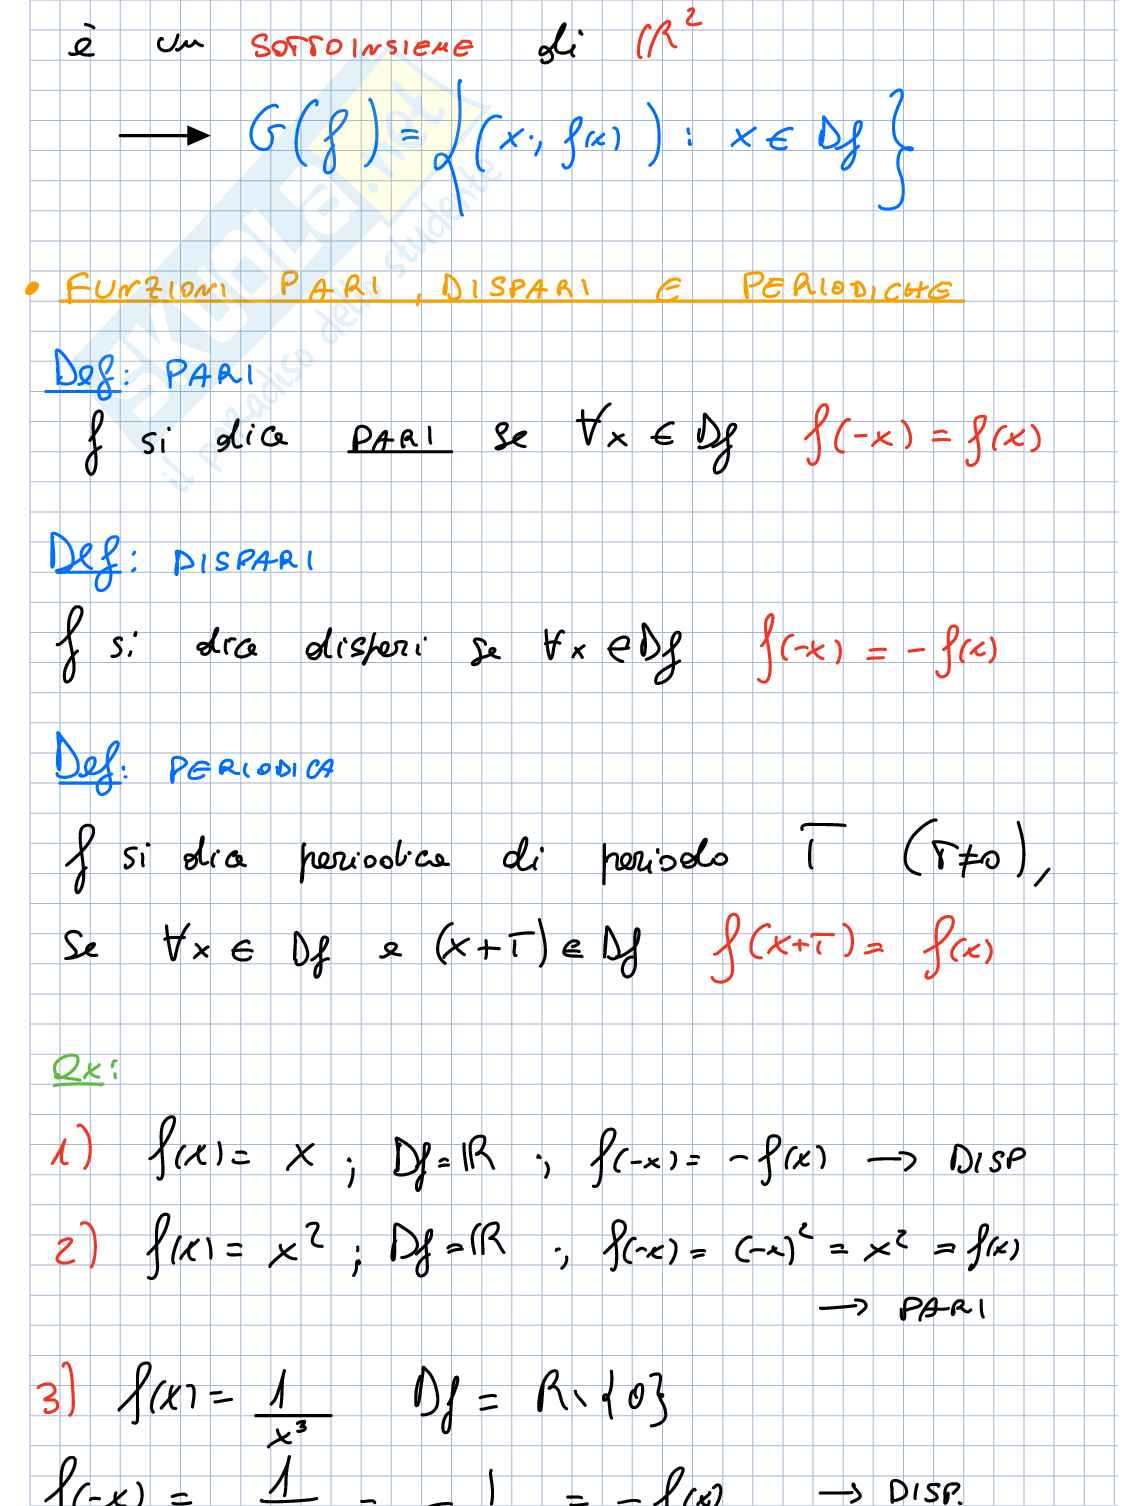 è un SOTTOINSIEME di ℝ²
→ G(f) = {(x; f(x)) : x ∈ Df}
• FUNZIONI PARI, DISPARI E PERIODICHE
Def: PARI
f si dica PARI se ∀x ∈ Df f(-x) = f(x)
Def: DISPARI
f si dica dispari se ∀x ∈ Df f(-x) = - f(x)
Def: PERIODICA
f si dica periodica di periodo T (T≠0),
Se ∀x ∈ Df e (x+T) ∈ Df f(x+T) = f(x)
Ex:
1) f(x) = x ; Df = ℝ ; f(-x) = - f(x) → DISP
2) f(x) = x² ; Df = ℝ ; f(-x) = (-x)² = x² = f(x)
→ PARI
3) f(x) = 1/x³ Df = R\{0}
f(-x) = 1 = - 1 = - f(x) → DISP.
SKUOLA.net
il paradiso dello studente